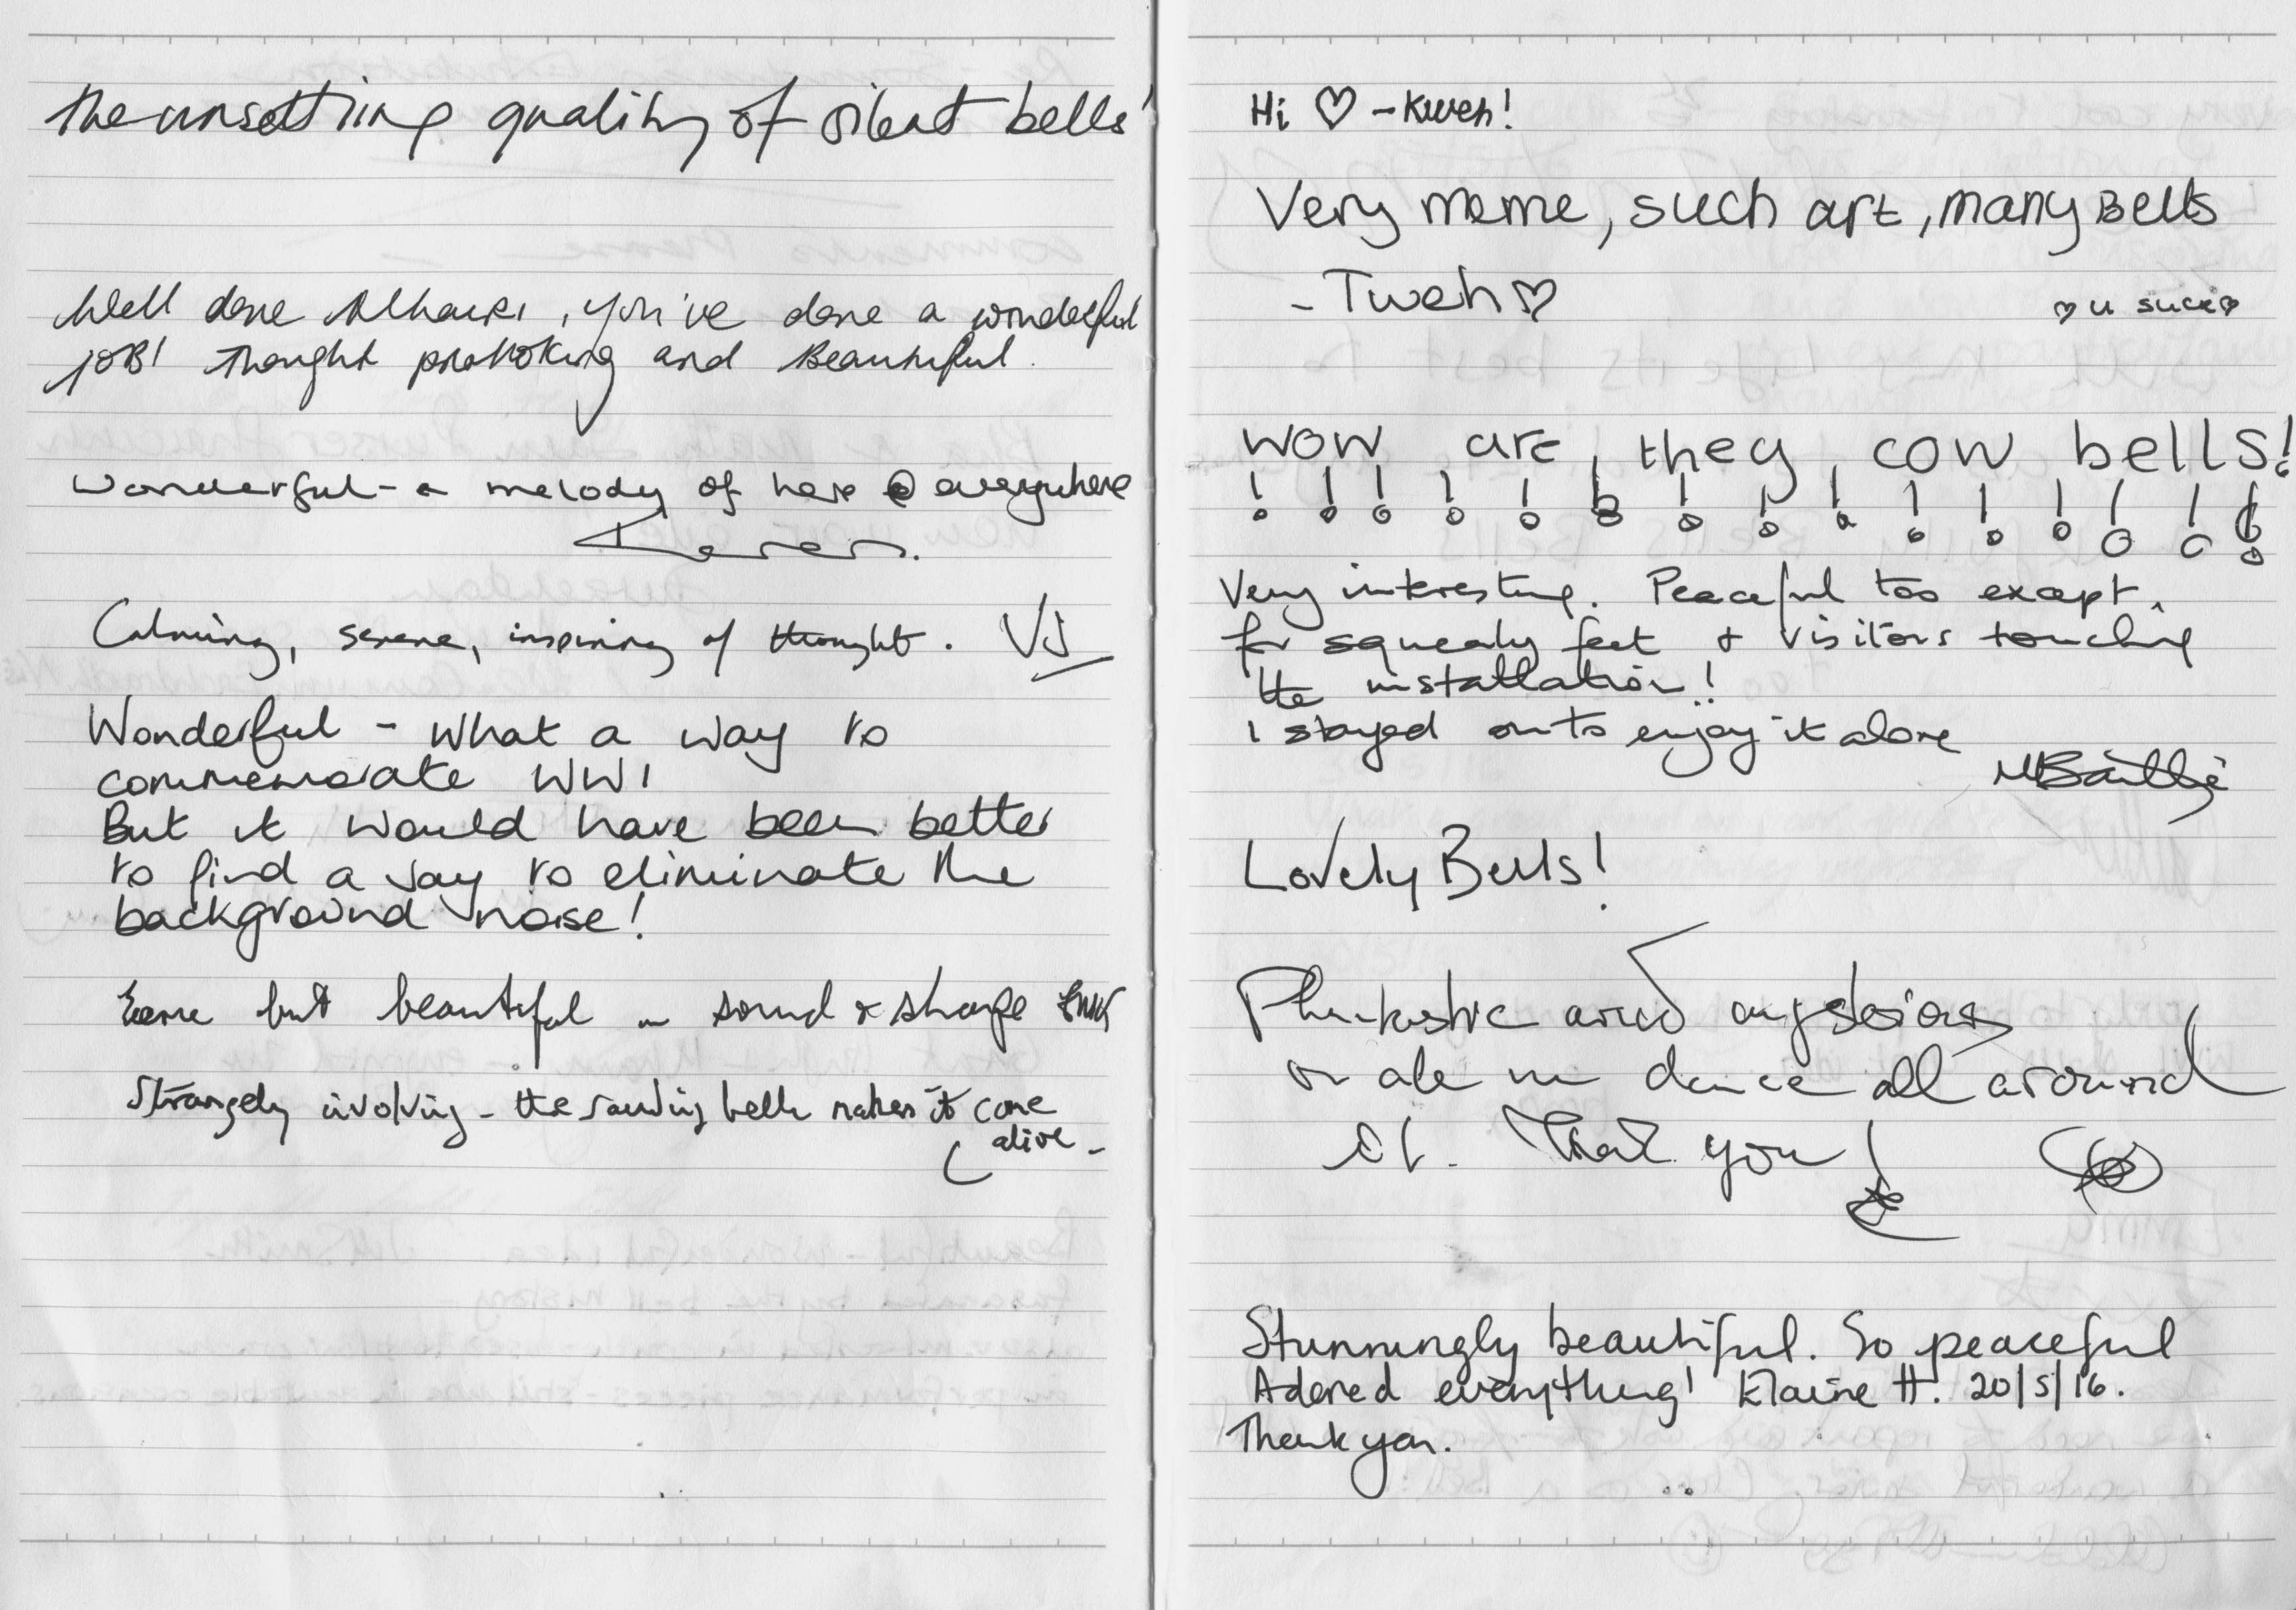 The unsettling quality of silent bells'
Well done , you've done a wonderful
jOB! thought provoking and Beautiful.
Wonderful - a melody of here @ everywhere
Calming, serene, inspiring of thought. VJ
Wonderful - what a way to
commemorate WW1
But it would have been better
to find a way to eliminate the
background noise!
Eerie but beautiful in sound & shape
Strangely involving - the sounding bells makes it come
alive -
Hi ♡ - Kweh!
Very meme, such art, many Bells
- Tweh ♡
♡ u suck ♡
wow are, they, cow bells!
! ! ! ! ! ! ! ! ! ! ! ! ! ! !
Very interesting. Peaceful too except,
for squeaky feet & visitors touching
the installation!!
I stayed on to enjoy it alone
MBaillie
Lovely Bells!
Phantastic and mysterious
made me dance all around
it. Thank you!
Stunningly beautiful. So peaceful
Adored everything! Elaine H. 20/5/16.
Thank you.